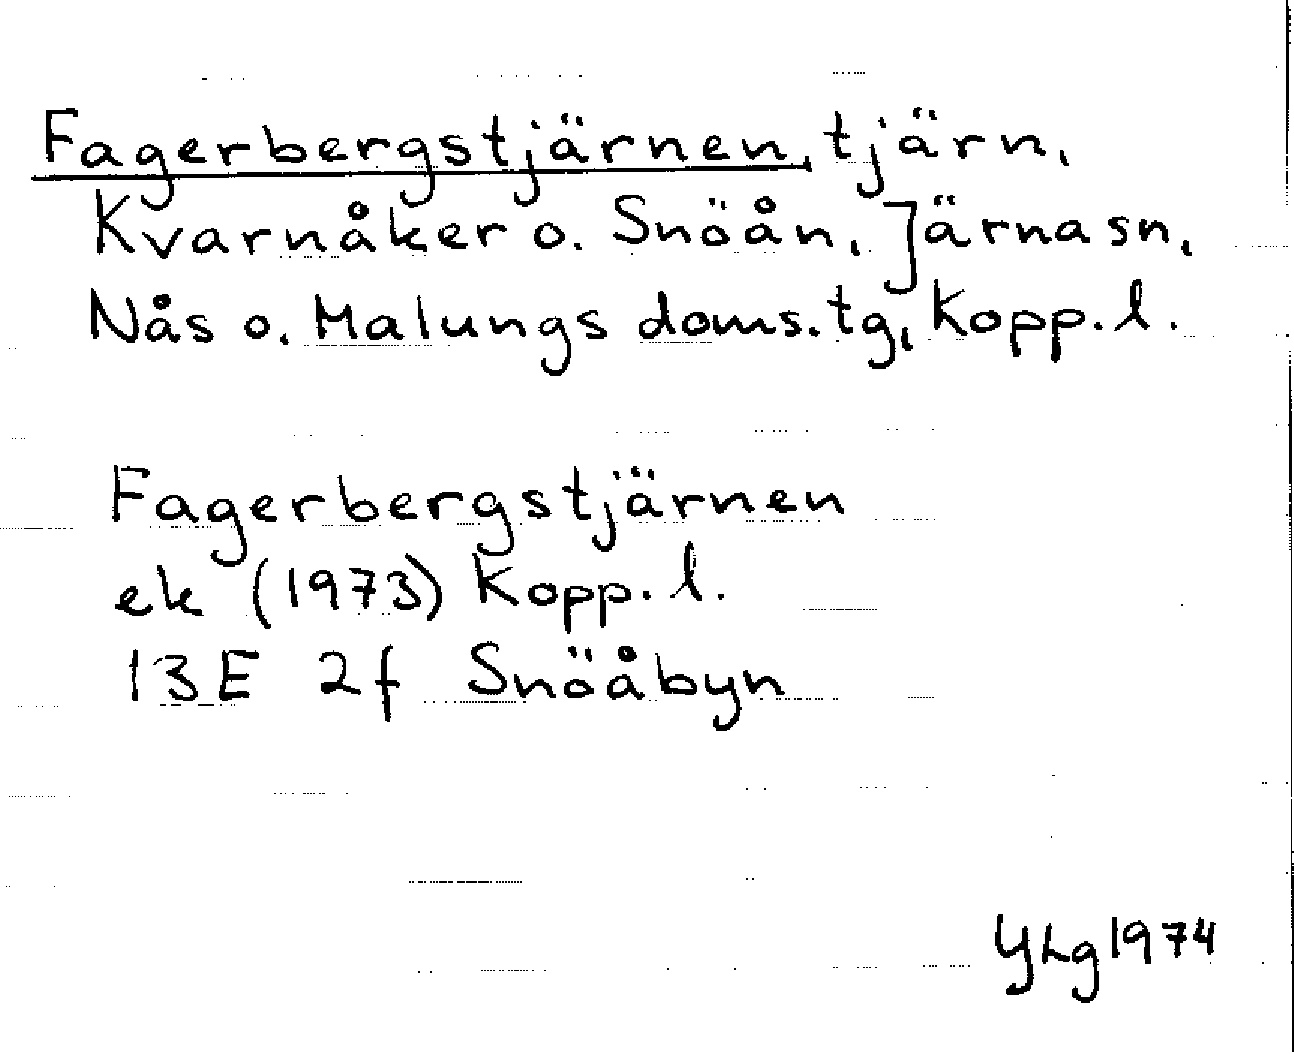 Fagerbergstjärnen, tjärn,
Kvarnåker o. Snöån, Järna sn,
Nås o. Malungs doms.tg, Kopp.l.
Fagerbergstjärnen
ek (1973) Kopp.l.
13E 2f Snöåbyn
YLg 1974